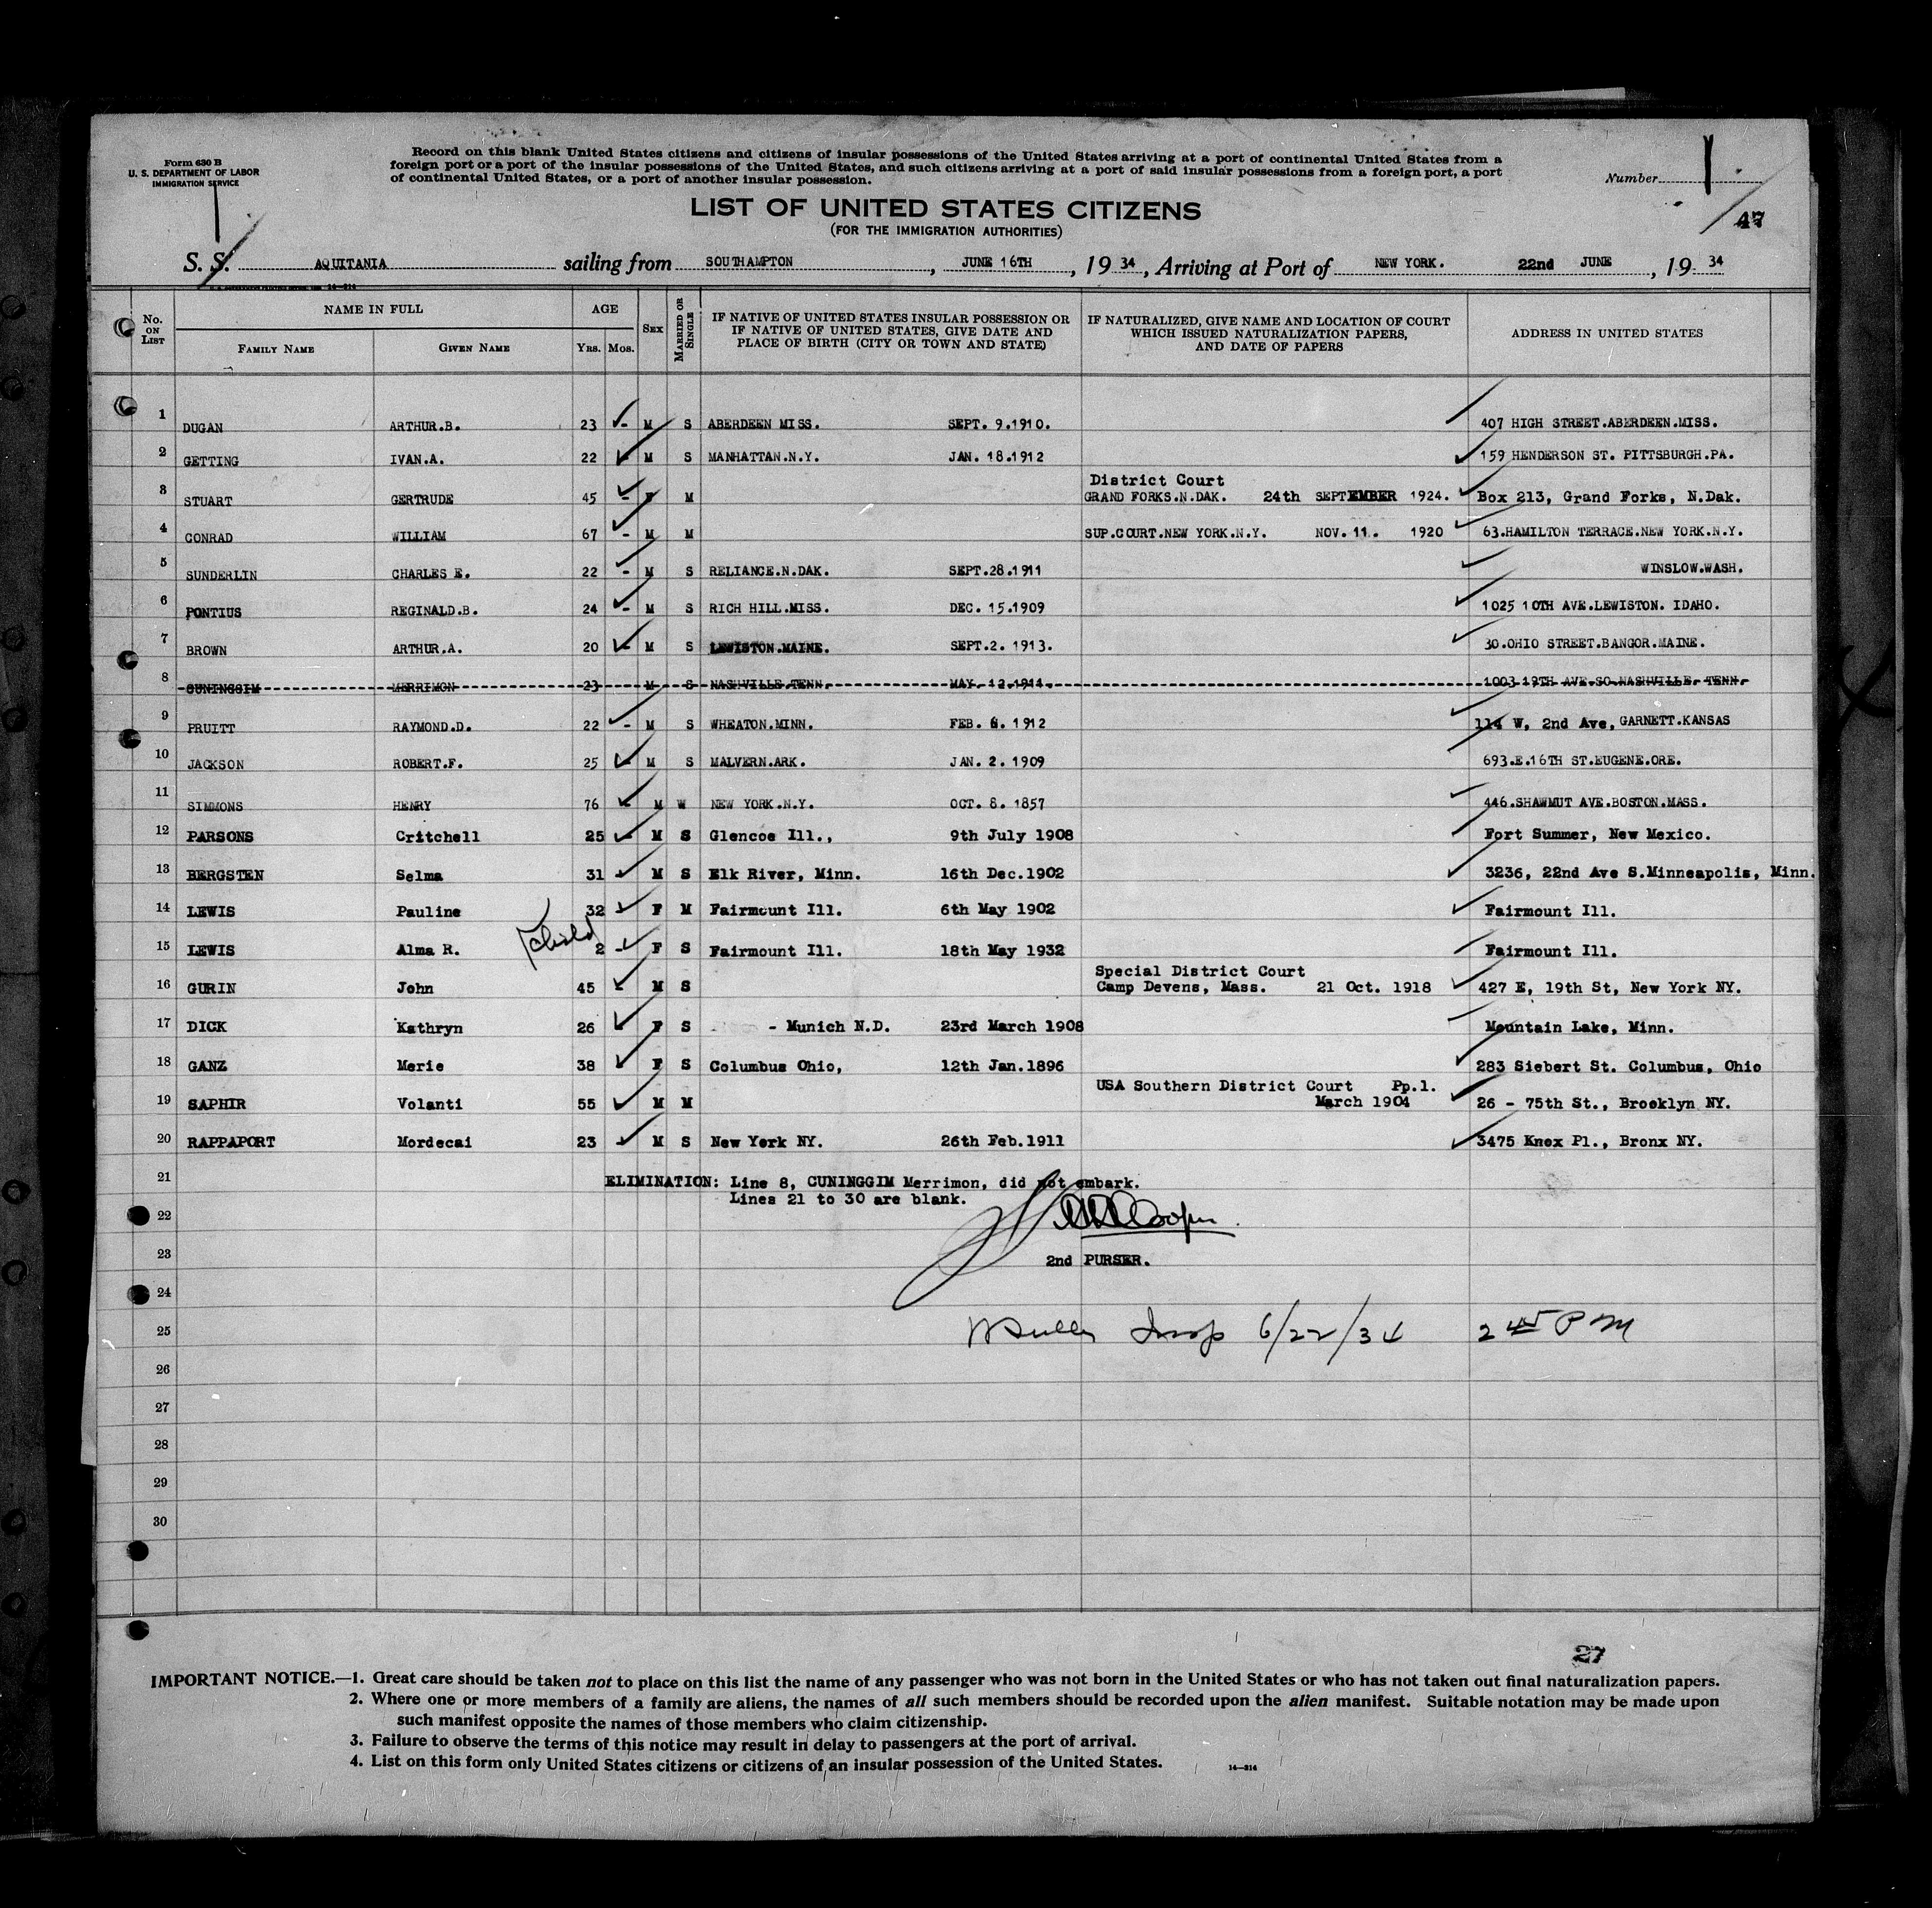 Form 630 B
U. S. DEPARTMENT OF LABOR
IMMIGRATION SERVICE
Record on this blank United States citizens and citizens of insular possessions of the United States arriving at a port of continental United States from a
foreign port or a port of the insular possessions of the United States, and such citizens arriving at a port of said insular possessions from a foreign port, a port
of continental United States, or a port of another insular possession.
Number 1
47
LIST OF UNITED STATES CITIZENS
(FOR THE IMMIGRATION AUTHORITIES)
S. S. AQUITANIA sailing from SOUTHAMPTON, JUNE 16TH, 19 34, Arriving at Port of NEW YORK. 22nd JUNE, 19 34
No. ON LIST NAME IN FULL AGE SEX MARRIED OR SINGLE IF NATIVE OF UNITED STATES INSULAR POSSESSION OR IF NATIVE OF UNITED STATES, GIVE DATE AND PLACE OF BIRTH (CITY OR TOWN AND STATE) IF NATURALIZED, GIVE NAME AND LOCATION OF COURT WHICH ISSUED NATURALIZATION PAPERS, AND DATE OF PAPERS ADDRESS IN UNITED STATES
FAMILY NAME GIVEN NAME YRS. MOS.
1 DUGAN ARTHUR.B. 23 - M S ABERDEEN MISS. SEPT. 9.1910. 407 HIGH STREET.ABERDEEN.MISS.
2 GETTING IVAN.A. 22 M S MANHATTAN.N.Y. JAN. 18.1912 159 HENDERSON ST. PITTSBURGH.PA.
District Court
3 STUART GERTRUDE 45 - F M GRAND FORKS.N.DAK. 24th SEPTEMBER 1924. Box 213, Grand Forks, N.Dak.
4 CONRAD WILLIAM 67 - M M SUP.COURT.NEW YORK.N.Y. NOV. 11. 1920 63.HAMILTON TERRACE.NEW YORK.N.Y.
5 SUNDERLIN CHARLES E. 22 - M S RELIANCE.N.DAK. SEPT.28.1911 WINSLOW.WASH.
6 PONTIUS REGINALD.B. 24 - M S RICH HILL.MISS. DEC. 15.1909 1025 10TH AVE.LEWISTON. IDAHO.
7 BROWN ARTHUR.A. 20 - M S LEWISTON.MAINE. SEPT.2. 1913. 30.OHIO STREET.BANGOR.MAINE.
8 CUNINGGIM MERRIMON 23 M S NASHVILLE.TENN. MAY. 12.1911. 1003 19TH AVE.SO.NASHVILLE. TENN.
9 PRUITT RAYMOND.D. 22 - M S WHEATON.MINN. FEB. 6. 1912 114 W, 2nd Ave, GARNETT.KANSAS
10 JACKSON ROBERT.F. 25 - M S MALVERN.ARK. JAN. 2. 1909 693.E.16TH ST.EUGENE.ORE.
11 SIMMONS HENRY 76 - M W NEW YORK.N.Y. OCT. 8. 1857 446.SHAWMUT AVE.BOSTON.MASS.
12 PARSONS Critchell 25 - M S Glencoe Ill., 9th July 1908 Fort Summer, New Mexico.
13 BERGSTEN Selma 31 - M S Elk River, Minn. 16th Dec.1902 3236, 22nd Ave S.Minneapolis, Minn.
14 LEWIS Pauline 32 - F M Fairmount Ill. 6th May 1902 Fairmount Ill.
15 LEWIS Alma R. child 2 - F S Fairmount Ill. 18th May 1932 Fairmount Ill.
Special District Court
16 GURIN John 45 - M S Camp Devens, Mass. 21 Oct. 1918 427 E, 19th St, New York NY.
17 DICK Kathryn 26 - F S - Munich N.D. 23rd March 1908 Mountain Lake, Minn.
18 GANZ Merie 38 F S Columbus Ohio, 12th Jan.1896 283 Siebert St. Columbus, Ohio
USA Southern District Court Pp.1.
19 SAPHIR Volanti 55 - M M March 1904 26 - 75th St., Brooklyn NY.
20 RAPPAPORT Mordecai 23 - M S New York NY. 26th Feb.1911 3475 Knox Pl., Bronx NY.
21 ELIMINATION: Line 8, CUNINGGIM Merrimon, did not embark.
Lines 21 to 30 are blank.
22 Cooper
23 2nd PURSER.
24
25 Insp 6/22/34 2 45 PM
26
27
28
29
30
27
IMPORTANT NOTICE.—1. Great care should be taken not to place on this list the name of any passenger who was not born in the United States or who has not taken out final naturalization papers.
2. Where one or more members of a family are aliens, the names of all such members should be recorded upon the alien manifest. Suitable notation may be made upon
such manifest opposite the names of those members who claim citizenship.
3. Failure to observe the terms of this notice may result in delay to passengers at the port of arrival.
4. List on this form only United States citizens or citizens of an insular possession of the United States.
14—214